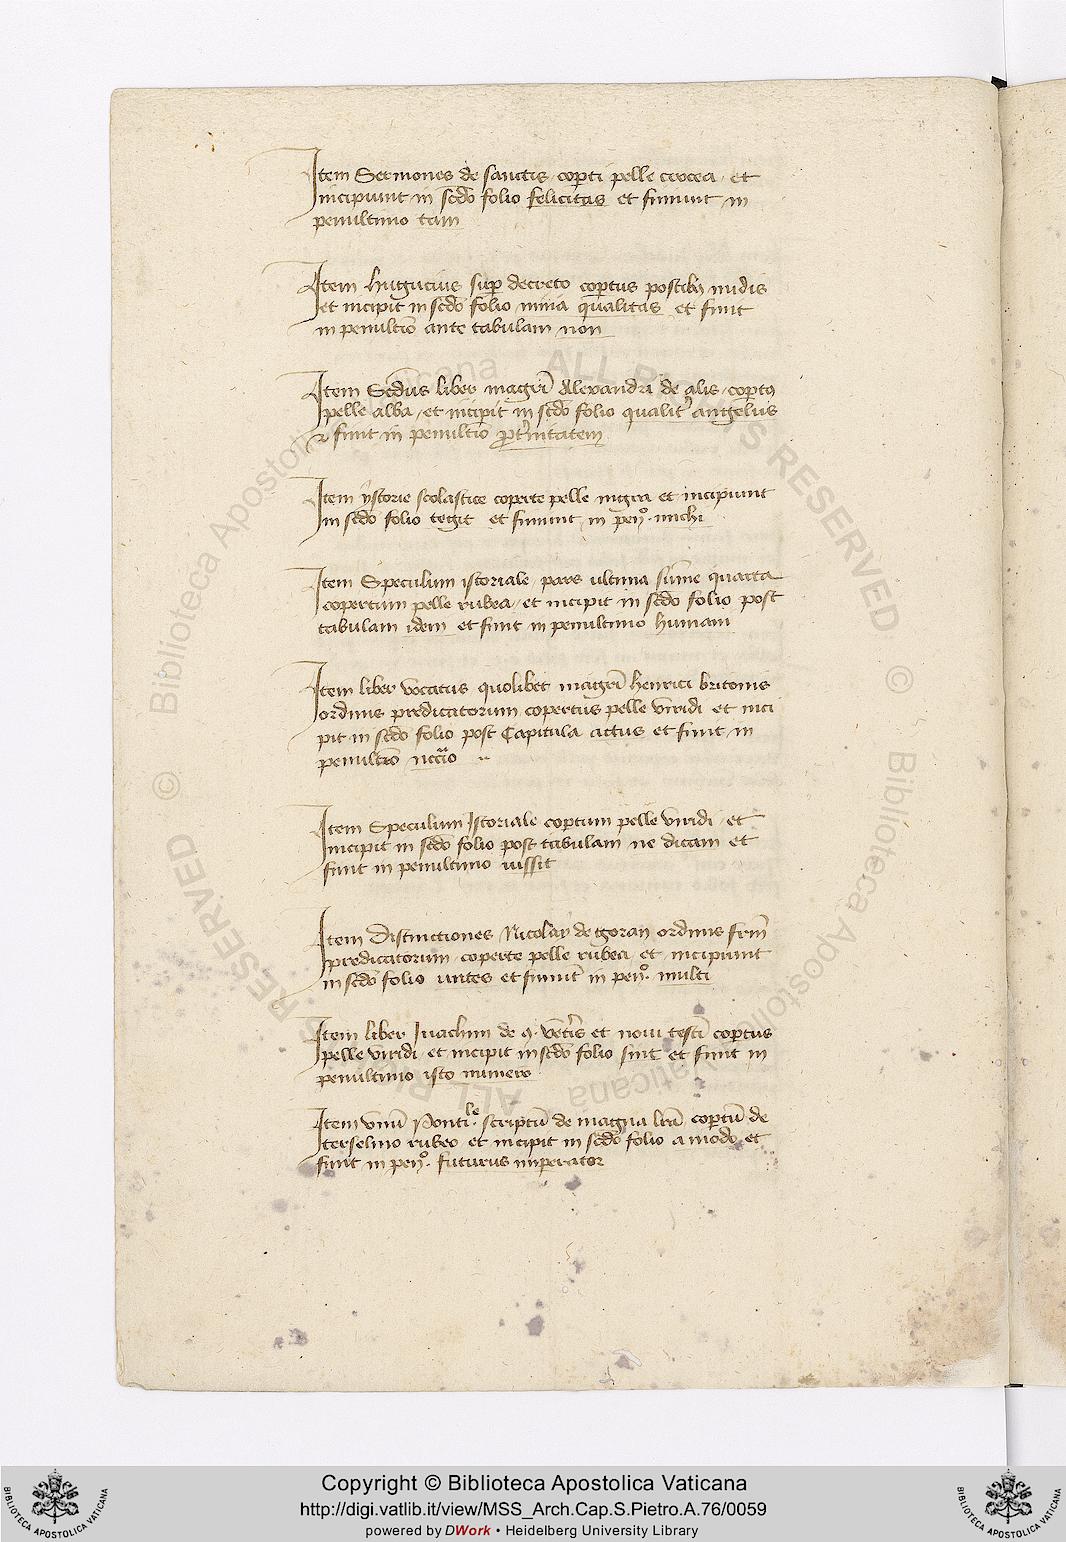 Item Sermones de sanctis coperti pelle crocea et
incipiunt in scdo folio felicitas et finiunt in
penultimo tam
Item hugucius sup decreto copertus postibus nudis
et incipit in scdo folio qualitas et finit
in penultio ante tabulam non
Item Scdus liber magri Alexandri de alis copertus
pelle alba et incipit in scdo folio qualiter angelus
et finit in penultio
Item ystorie scolastice coperte pelle nigra et incipiunt
in scdo folio tegit et finiunt in pen.o michi
Item Speculum istoriale pars ultima sume quarta
copertum pelle rubea et incipit in scdo folio post
tabulam idem et finit in penultimo humani
Item liber vocatus quolibet magri henrici britonis
ordinis predicatorum copertus pelle viridi et inci
pit in scdo folio post Capitula actus et finit in
penultio
Item Speculum Istoriale copertum pelle viridi et
incipit in scdo folio post tabulam ne dicam et
finit in penultimo iussit
Item Distinctiones Nicolay de goran ordinis frm
predicatorum coperte pelle rubea et incipiunt
in scdo folio et finiunt in pen.o multi
Item liber Iuachim de 9. veteris et noui testi copertus
pelle viridi et incipit in scdo folio sint et finit in
penultimo isto numero
Item unu Pontile. scriptu de magna lra copertu de
terselino rubeo et incipit in scdo folio amodo et
finit in pen.o futurus imperator
Copyright © Biblioteca Apostolica Vaticana
http://digi.vatlib.it/view/MSS_Arch.Cap.S.Pietro.A.76/0059
powered by DWork • Heidelberg University Library